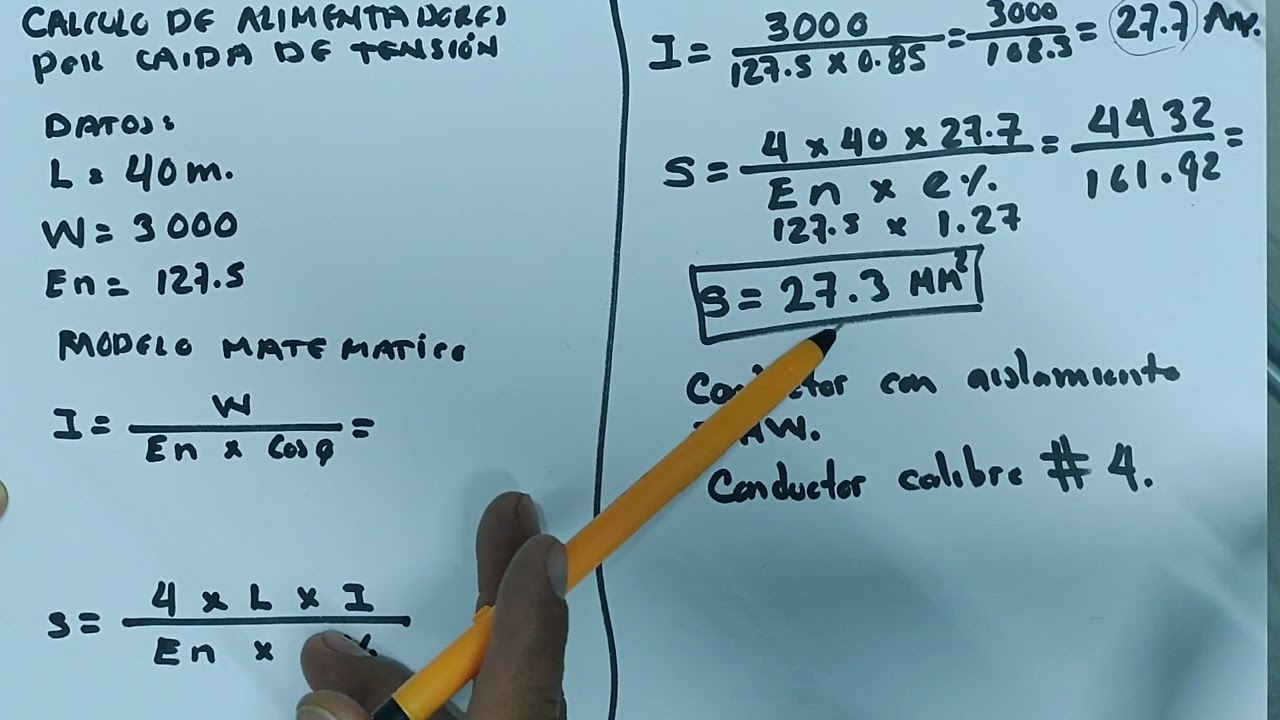 CALCULO DE ALIMENTADORES
POR CAIDA DE TENSIÓN
DATOS:
L = 40 m.
W = 3000
En = 127.5
MODELO MATEMATICO
I = W / En x Cos φ =
S = 4 x L x I / En x %
I = 3000 / 127.5 x 0.85 = 3000 / 108.3 = 27.7 Am.
S = 4 x 40 x 27.7 / En x e% = 4432 / 161.92 =
127.5 x 1.27
S = 27.3 MM²
con aislamiento
Conductor calibre # 4.